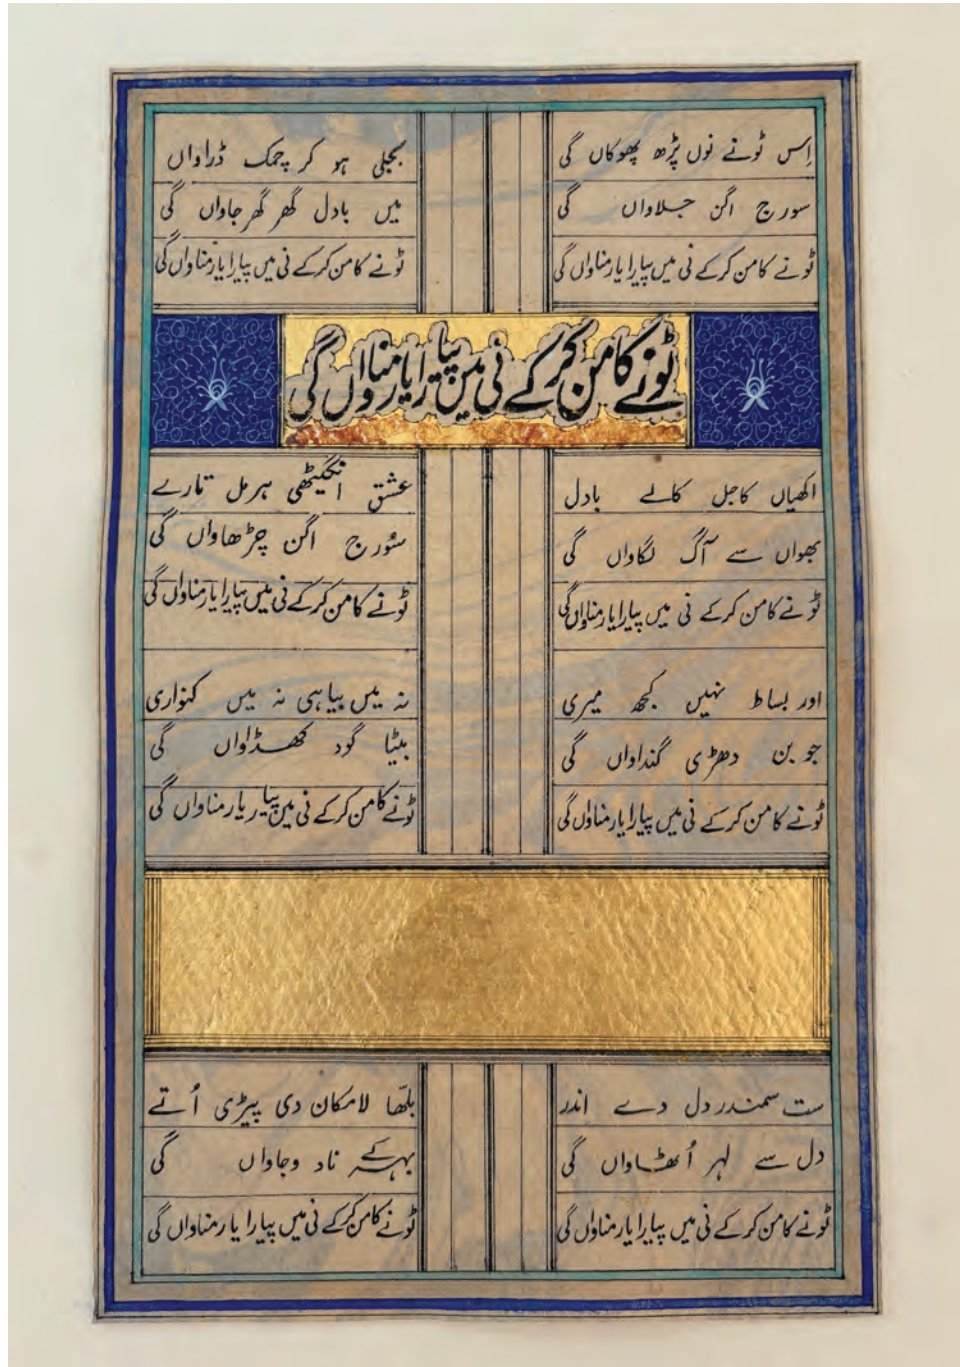 اِس ٹونے نوں پڑھ پھوکاں گی
سورج اگن جلاواں گی
ٹونے کامن کر کے نی میں پیارا یار مناواں گی
بجلی ہو کر چمک ڈراواں
میں بادل گھر گھر جاواں گی
ٹونے کامن کر کے نی میں پیارا یار مناواں گی
ٹونے کامن کر کے نی میں پیارا یار مناواں گی
اکھیاں کاجل کالے بادل
بھواں سے آگ لگاواں گی
ٹونے کامن کر کے نی میں پیارا یار مناواں گی
عشق انگیٹھی ہرمل تارے
سُورج اگن چڑھاواں گی
ٹونے کامن کر کے نی میں پیارا یار مناواں گی
اور بساط نہیں کجھ میری
جوبن دھڑی گنداواں گی
ٹونے کامن کر کے نی میں پیارا یار مناواں گی
نہ میں بیاہی نہ میں کنواری
بیٹا گود کھڈاواں گی
ٹونے کامن کر کے نی میں پیار یار مناواں گی
ست سمندر دل دے اندر
دل سے لہر اُٹھاواں گی
ٹونے کامن کر کے نی میں پیارا یار مناواں گی
بلّھا لامکان دی پیڑی اُتے
بہہ کے ناد وجاواں گی
ٹونے کامن کر کے نی میں پیارا یار مناواں گی